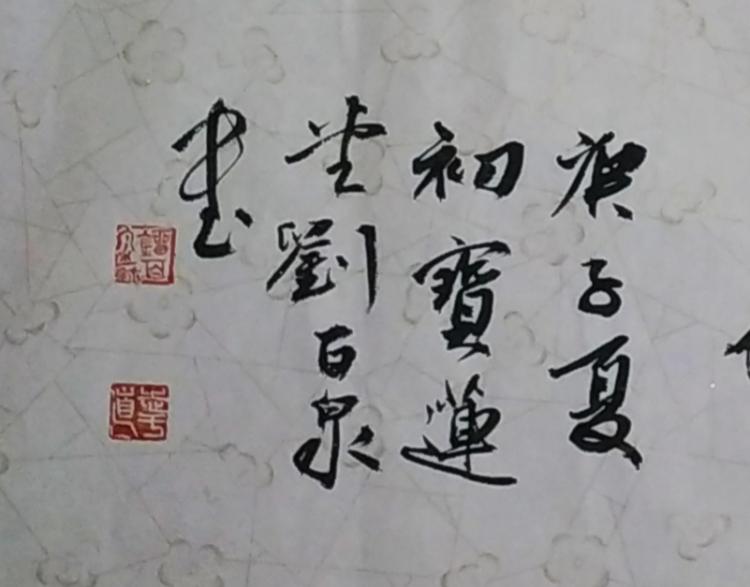 庚子夏
初寶蓮
堂劉百泉
書